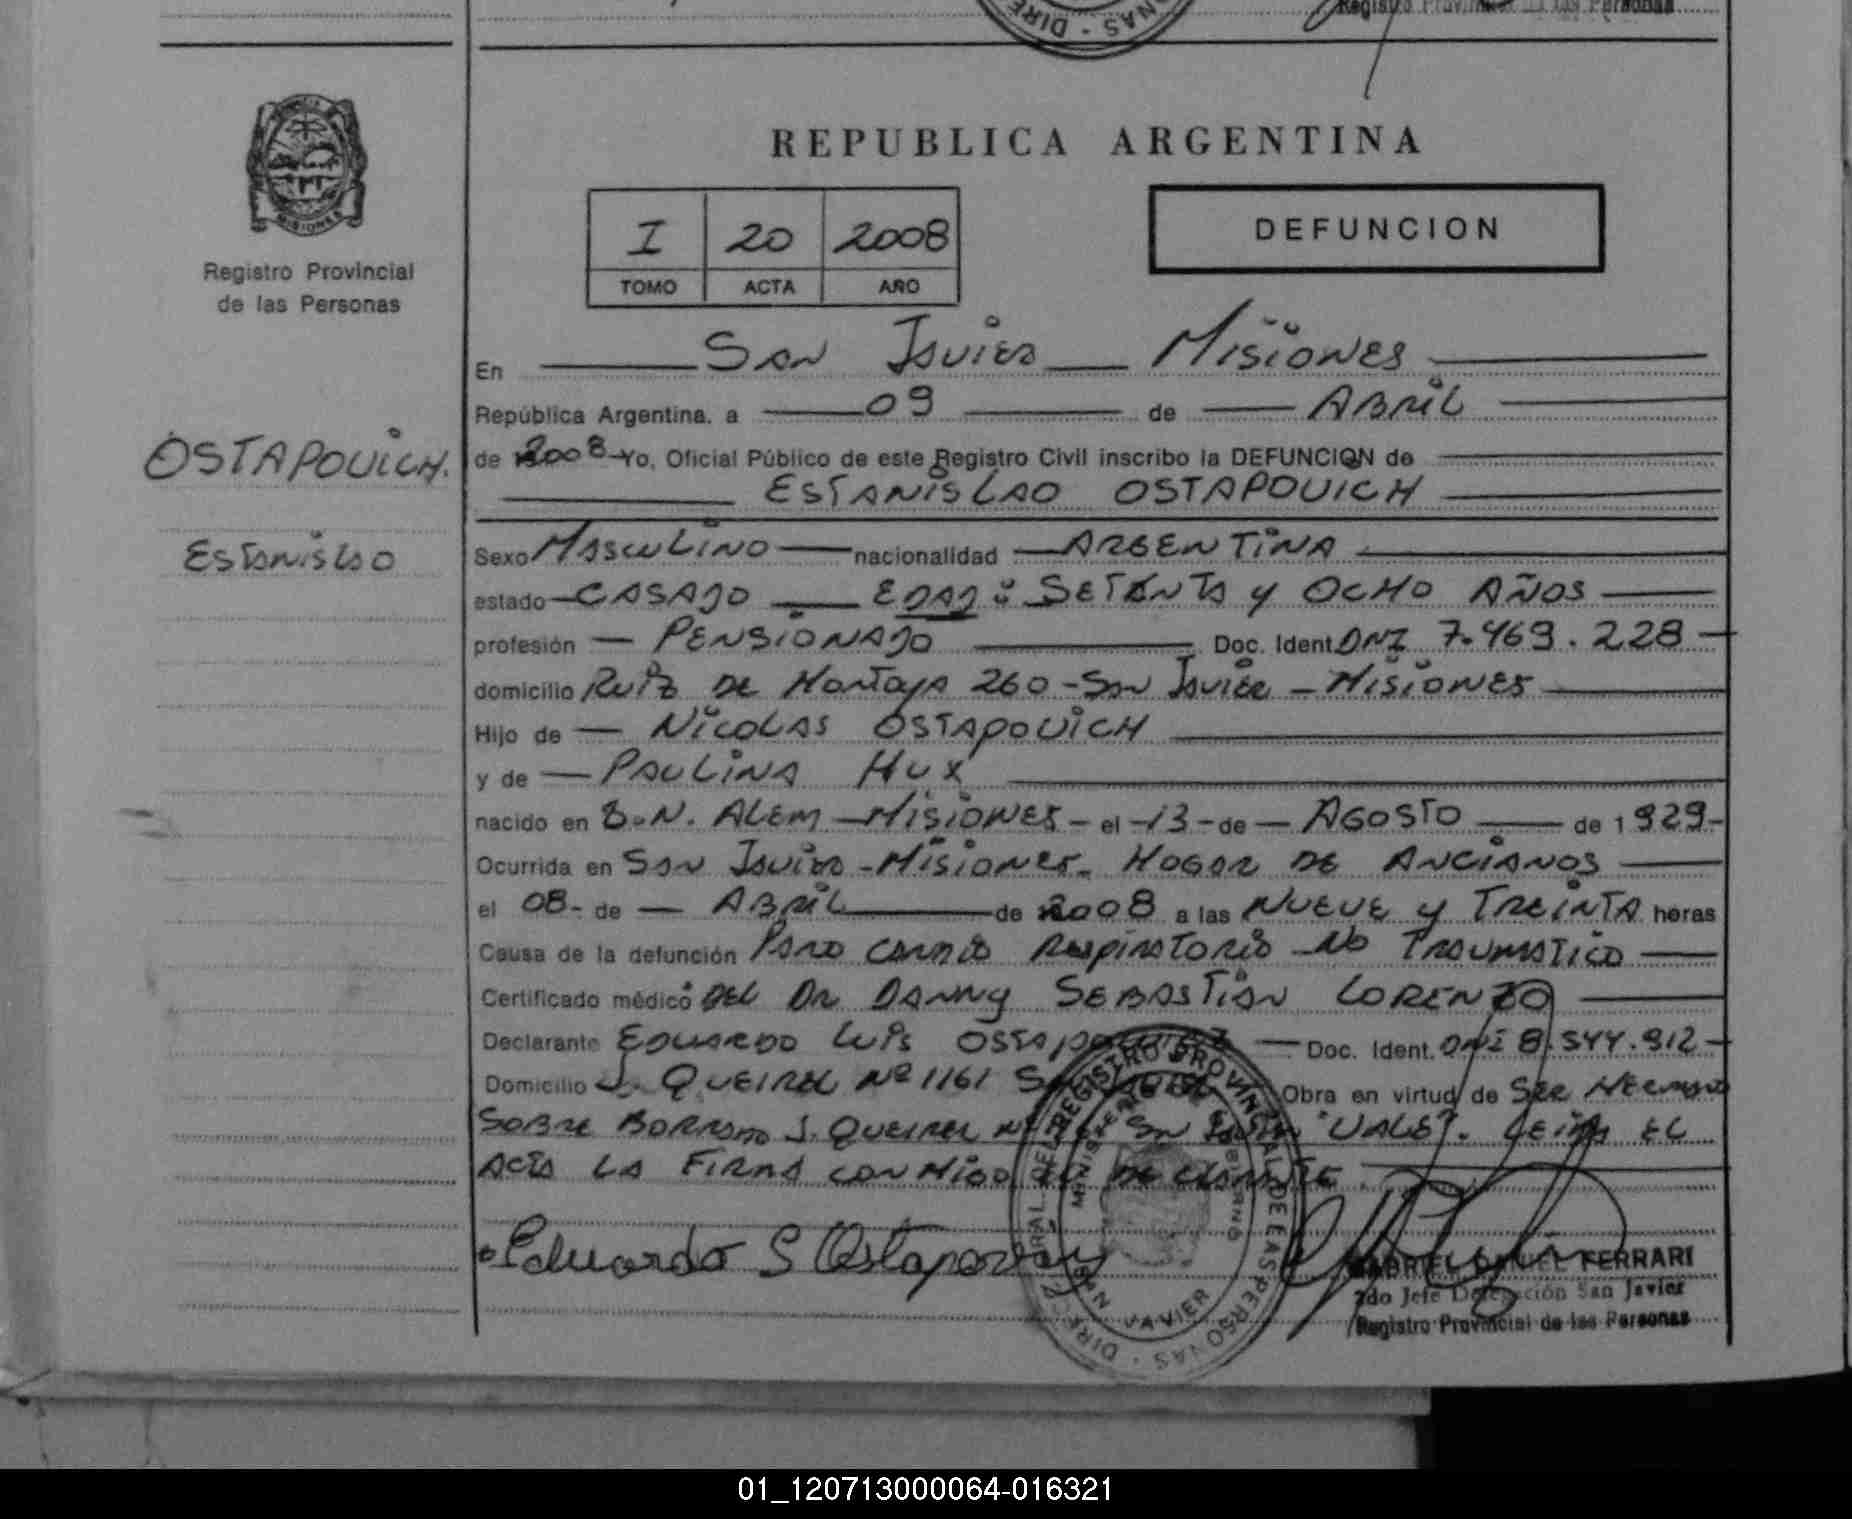 Registro Provincial de las Personas
DIRE · SANO
REPUBLICA ARGENTINA
MISIONES
Registro Provincial
de las Personas
I 20 2008
TOMO ACTA AÑO
DEFUNCION
En San Javier Misiones
República Argentina, a 09 de ABRIL
OSTAPOVICH.
de 2008 Yo, Oficial Público de este Registro Civil inscribo la DEFUNCION de
ESTANISLAO OSTAPOVICH
Estanislao
Sexo MASCULINO nacionalidad ARGENTINA
estado CASADO EDAD: SETENTA y OCHO AÑOS
profesión PENSIONADO Doc. Ident. DNI 7.469.228
domicilio RUIZ DE Montoya 260 - San Javier - MISIONES
Hijo de NICOLAS OSTAPOVICH
y de PAULINA HUX
nacido en L.N. ALEM - MISIONES - el 13 - de AGOSTO de 1929-
Ocurrida en San Javier - MISIONES - HOGAR DE ANCIANOS
el 08 - de ABRIL de 2008 a las NUEVE y TREINTA horas
Causa de la defunción Paro cardio Respiratorio No Traumatico
Certificado médico DEL Dr DANNY SEBASTIAN LORENZO
Declarante EDUARDO LUIS OSTAPOVICH Doc. Ident. DNI 8.544.912
Domicilio J. QUEIREL Nº 1161 San Javier Obra en virtud de SER Hermano
SOBRE BORRADO J. QUEIREL Nº San Javier "VALE". LEIDA EL
ACTA LA FIRMA CONMIGO EL DECLARANTE.
Eduardo L Ostapovich
DIRECC RAL DEL REGISTRO PROVINCIAL DE LAS PERSONAS
MINISTERIO GOBIERNO
SAN JAVIER
GABRIEL DANIEL FERRARI
2do Jefe Delegación San Javier
Registro Provincial de las Personas
01_120713000064-016321